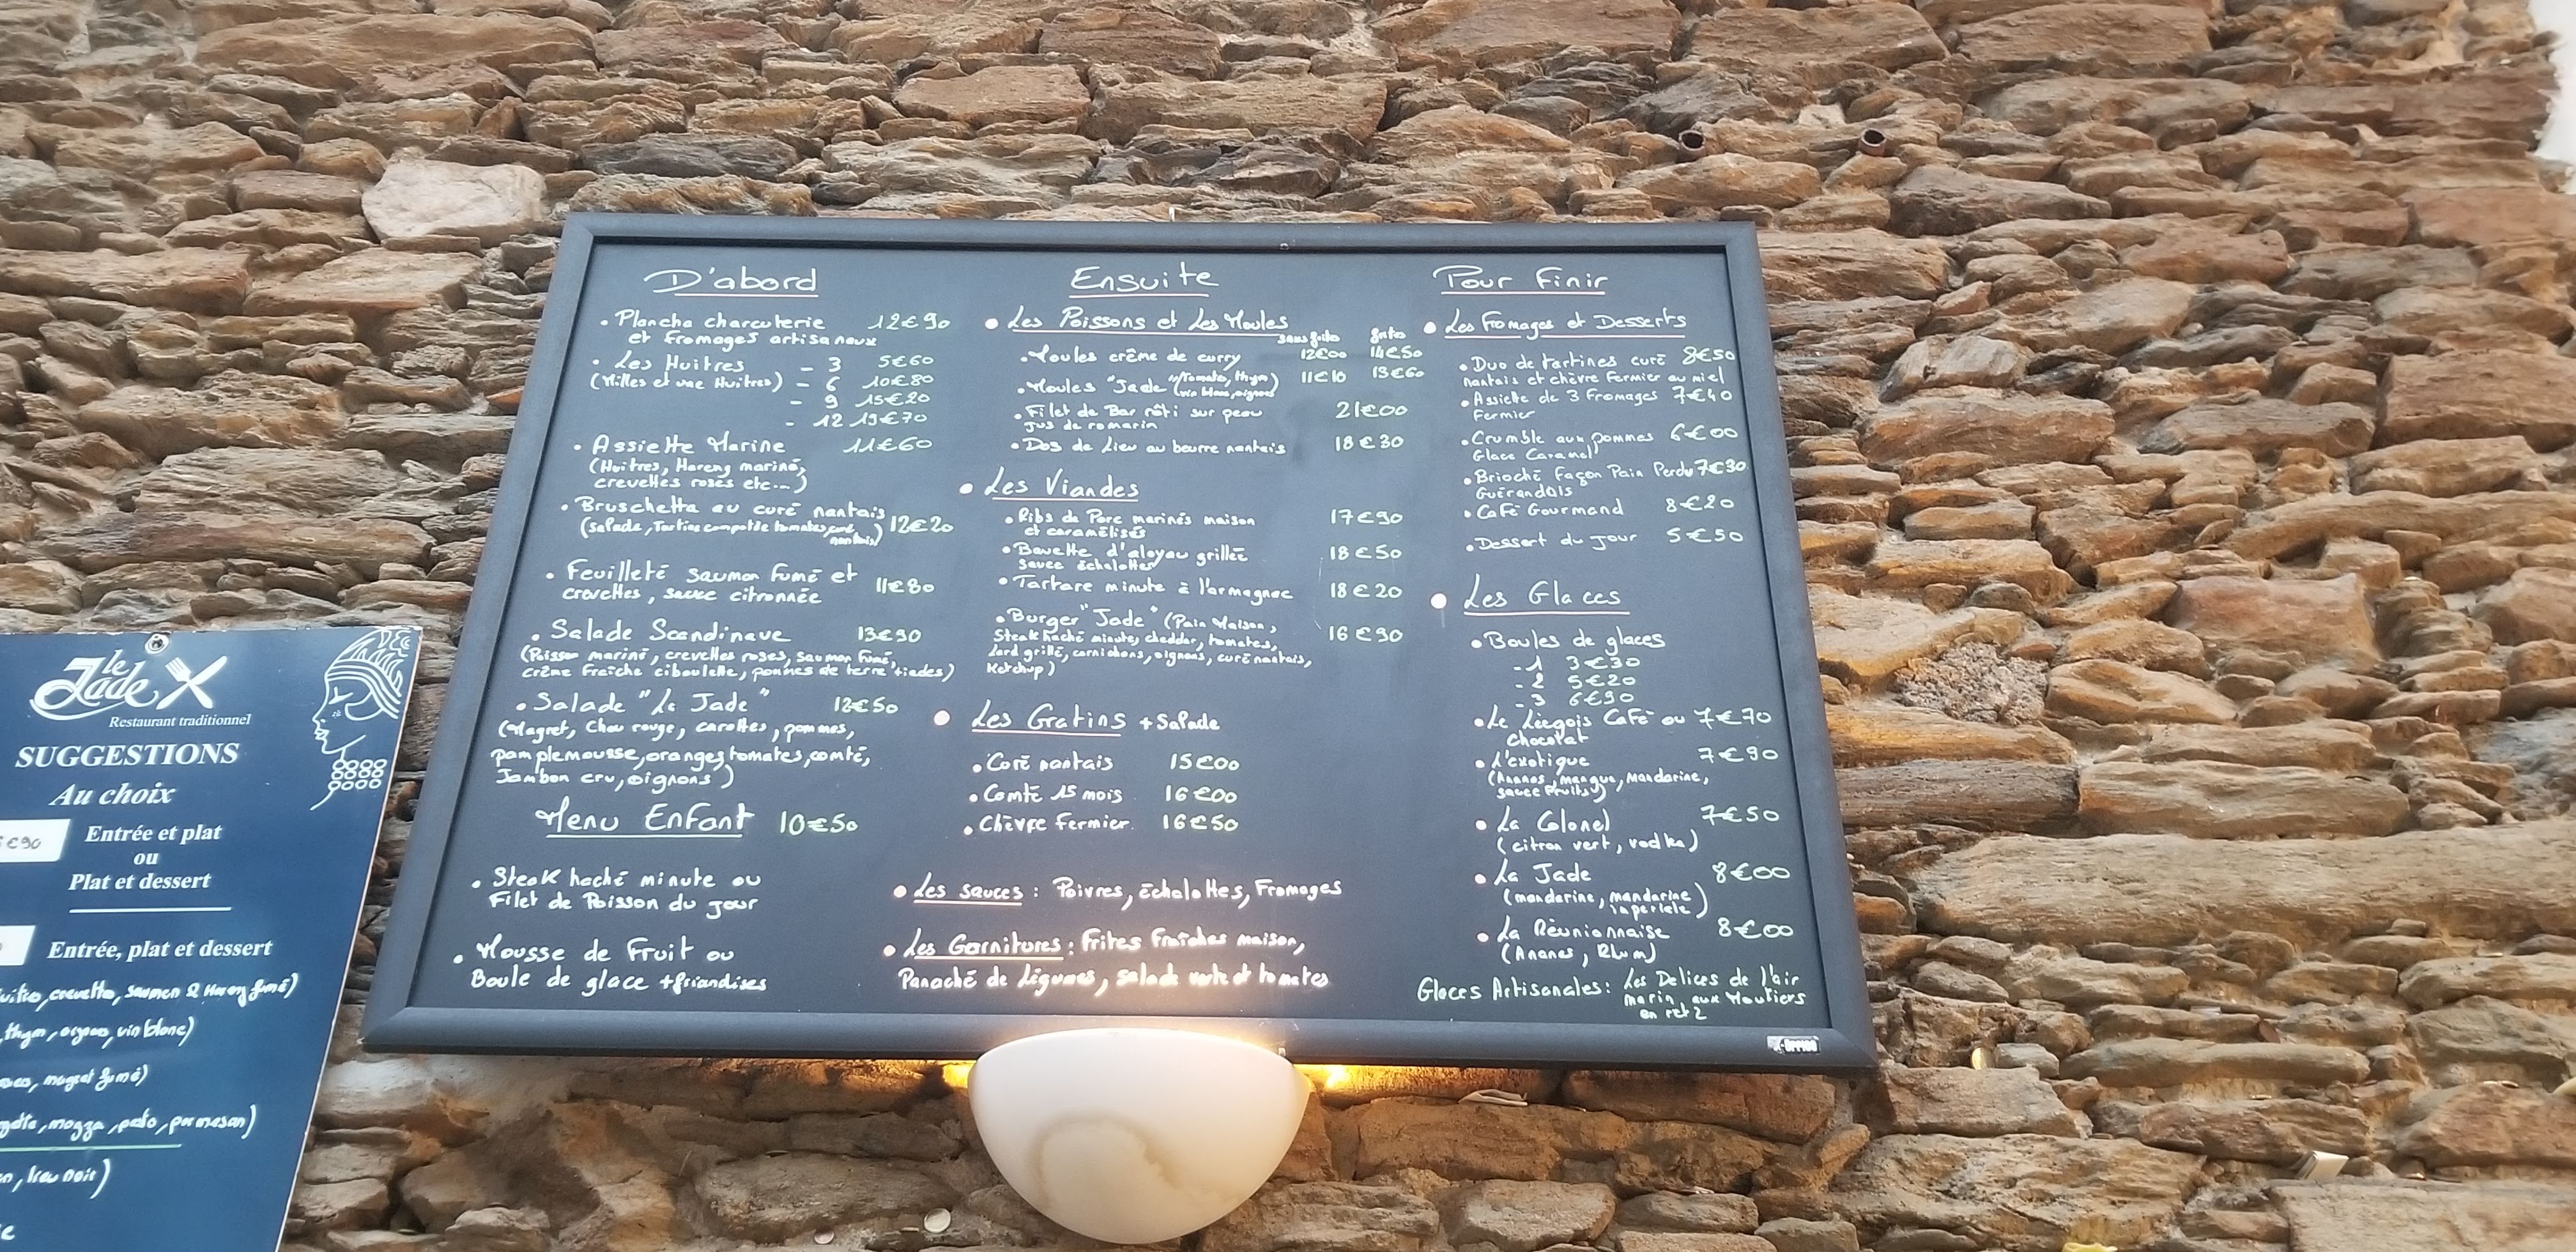 D'abord
• Plancha charcuterie 12€90
et fromages artisanaux
• Les Huitres - 3 5€60
(Milles et une Huitres) - 6 10€80
- 9 15€20
- 12 19€70
• Assiette Marine 11€60
(Huitres, Hareng mariné,
crevettes roses etc...)
• Bruschetta au curé nantais 12€20
(salade, Tartine compotée tomates, curé
nantais)
• Feuilleté saumon fumé et 11€80
crevettes, sauce citronnée
• Salade Scandinave 13€90
(Poisson mariné, crevettes roses, saumon fumé,
crème fraîche ciboulette, pommes de terre tiedes)
• Salade "Le Jade" 12€50
(Magret, Chou rouge, carottes, pommes,
pamplemousse, oranges, tomates, comté,
Jambon cru, oignons)
Menu Enfant 10€50
• Steak haché minute ou
Filet de Poisson du jour
• Mousse de Fruit ou
Boule de glace + friandises
Ensuite
• Les Poissons et Les Moules
sans frites frites
• Moules crème de curry 12€00 14€50
• Moules "Jade" (Tomate, thym, 11€10 13€60
vin blanc, oignons)
• Filet de Bar rôti sur peau 21€00
jus de romarin
• Dos de Lieu au beurre nantais 18€30
• Les Viandes
• Ribs de Porc marinés maison 17€90
et caramélisés
• Bavette d'aloyau grillée 18€50
sauce échalottes
• Tartare minute à l'armagnac 18€20
• Burger "Jade" (Pain Maison, 16€90
Steak haché minute, cheddar, tomates,
lard grillé, cornichons, oignons, curé nantais,
Ketchup)
• Les Gratins + Salade
• Curé nantais 15€00
• Comté 15 mois 16€00
• Chèvre Fermier 16€50
• Les sauces : Poivres, échalottes, Fromages
• Les Garnitures : Frites Fraîches maison,
Panaché de Légumes, salade verte et tomates
Pour Finir
• Les Fromages et Desserts
• Duo de tartines curé 8€50
nantais et chèvre Fermier au miel
• Assiette de 3 Fromages 7€40
Fermier
• Crumble aux pommes 6€00
Glace Caramel
• Brioché Façon Pain Perdu 7€30
Guérandais
• Café Gourmand 8€20
• Dessert du jour 5€50
• Les Glaces
• Boules de glaces
- 1 3€30
- 2 5€20
- 3 6€90
• Le Liégois Café ou 7€70
Chocolat
• L'exotique 7€90
(Ananas, mangue, Mandarine,
sauce Fruits)
• La Colonel 7€50
(citron vert, vodka)
• La Jade 8€00
(mandarine, mandarine
imperiale)
• La Réunionnaise 8€00
(Ananas, Rhum)
Glaces Artisanales : Les Delices de l'air
marin, aux Moutiers
en retz
le Jade
Restaurant traditionnel
SUGGESTIONS
Au choix
€90 Entrée et plat
ou
Plat et dessert
Entrée, plat et dessert
crevettes, saumon & Hareng fumé)
thym, oignons, vin blanc)
magret fumé)
mozza, pesto, parmesan)
lieu noir)